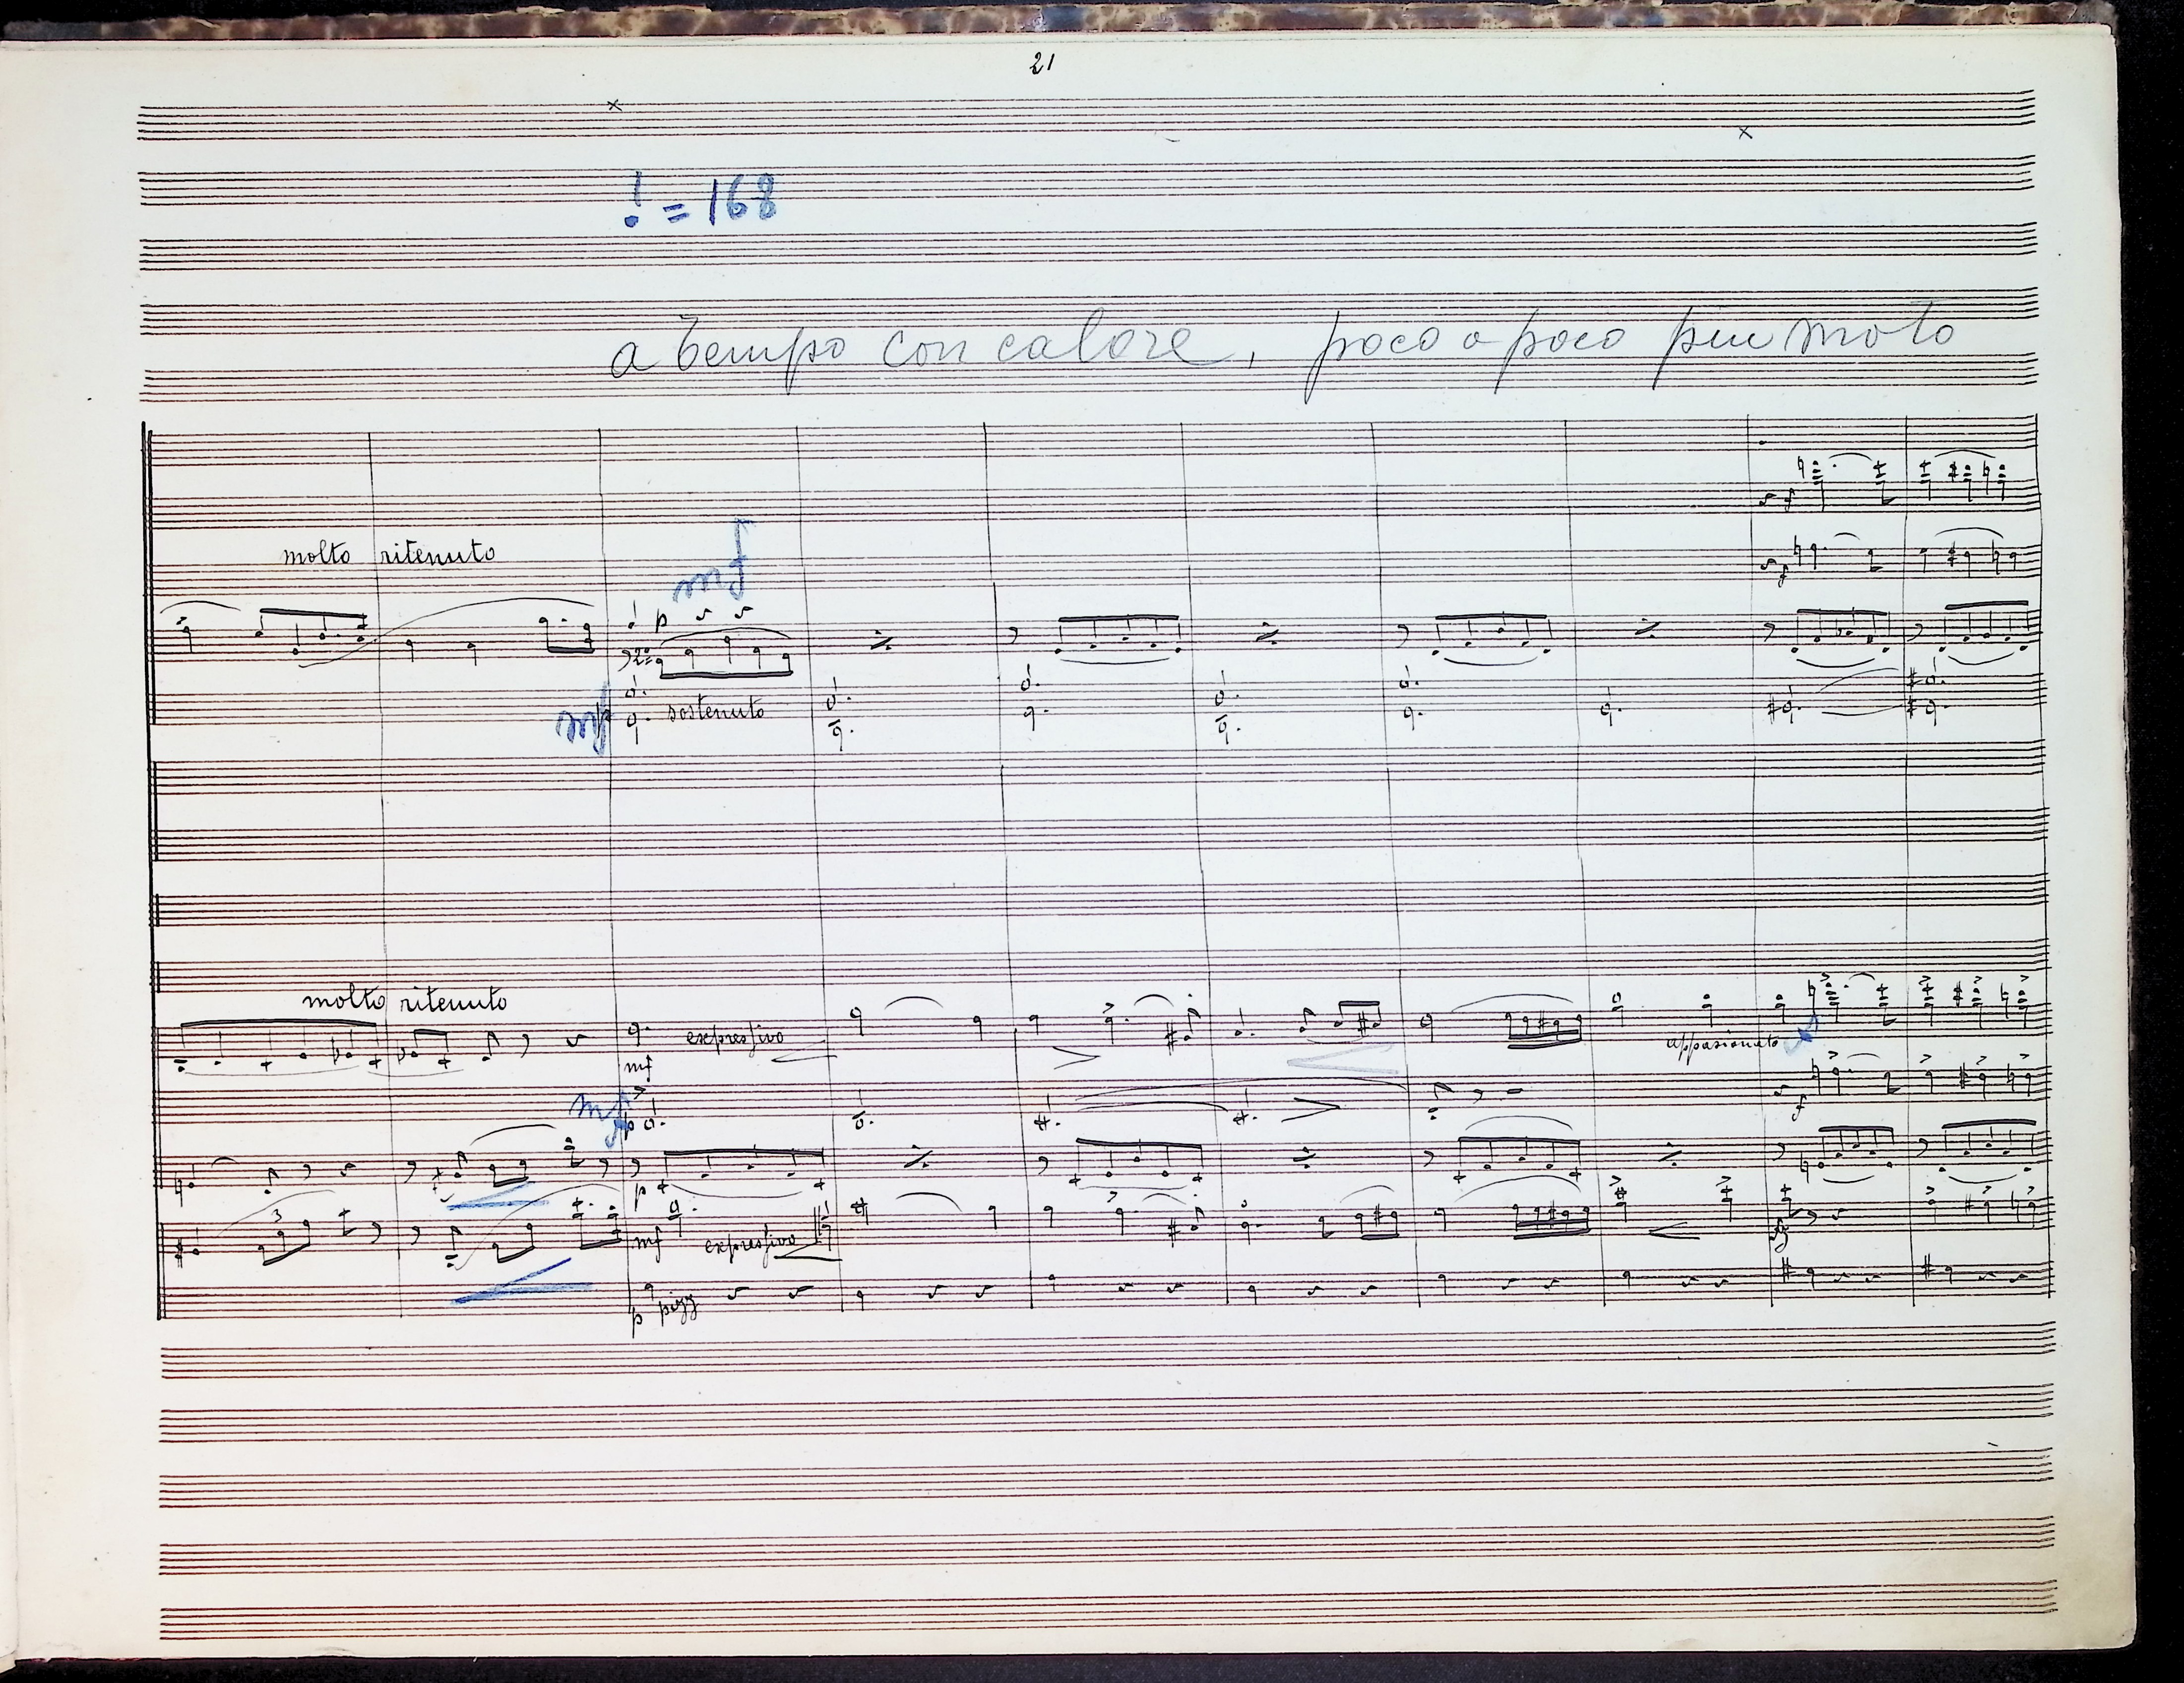 21
♩ = 168
a tempo con calore, poco a poco piu moto
f
molto ritenuto
mf
f
p
mf sostenuto
molto ritenuto
expressivo
appasionato
mf
mf
f
p
p
3
mf expressivo
sfz
p pizz